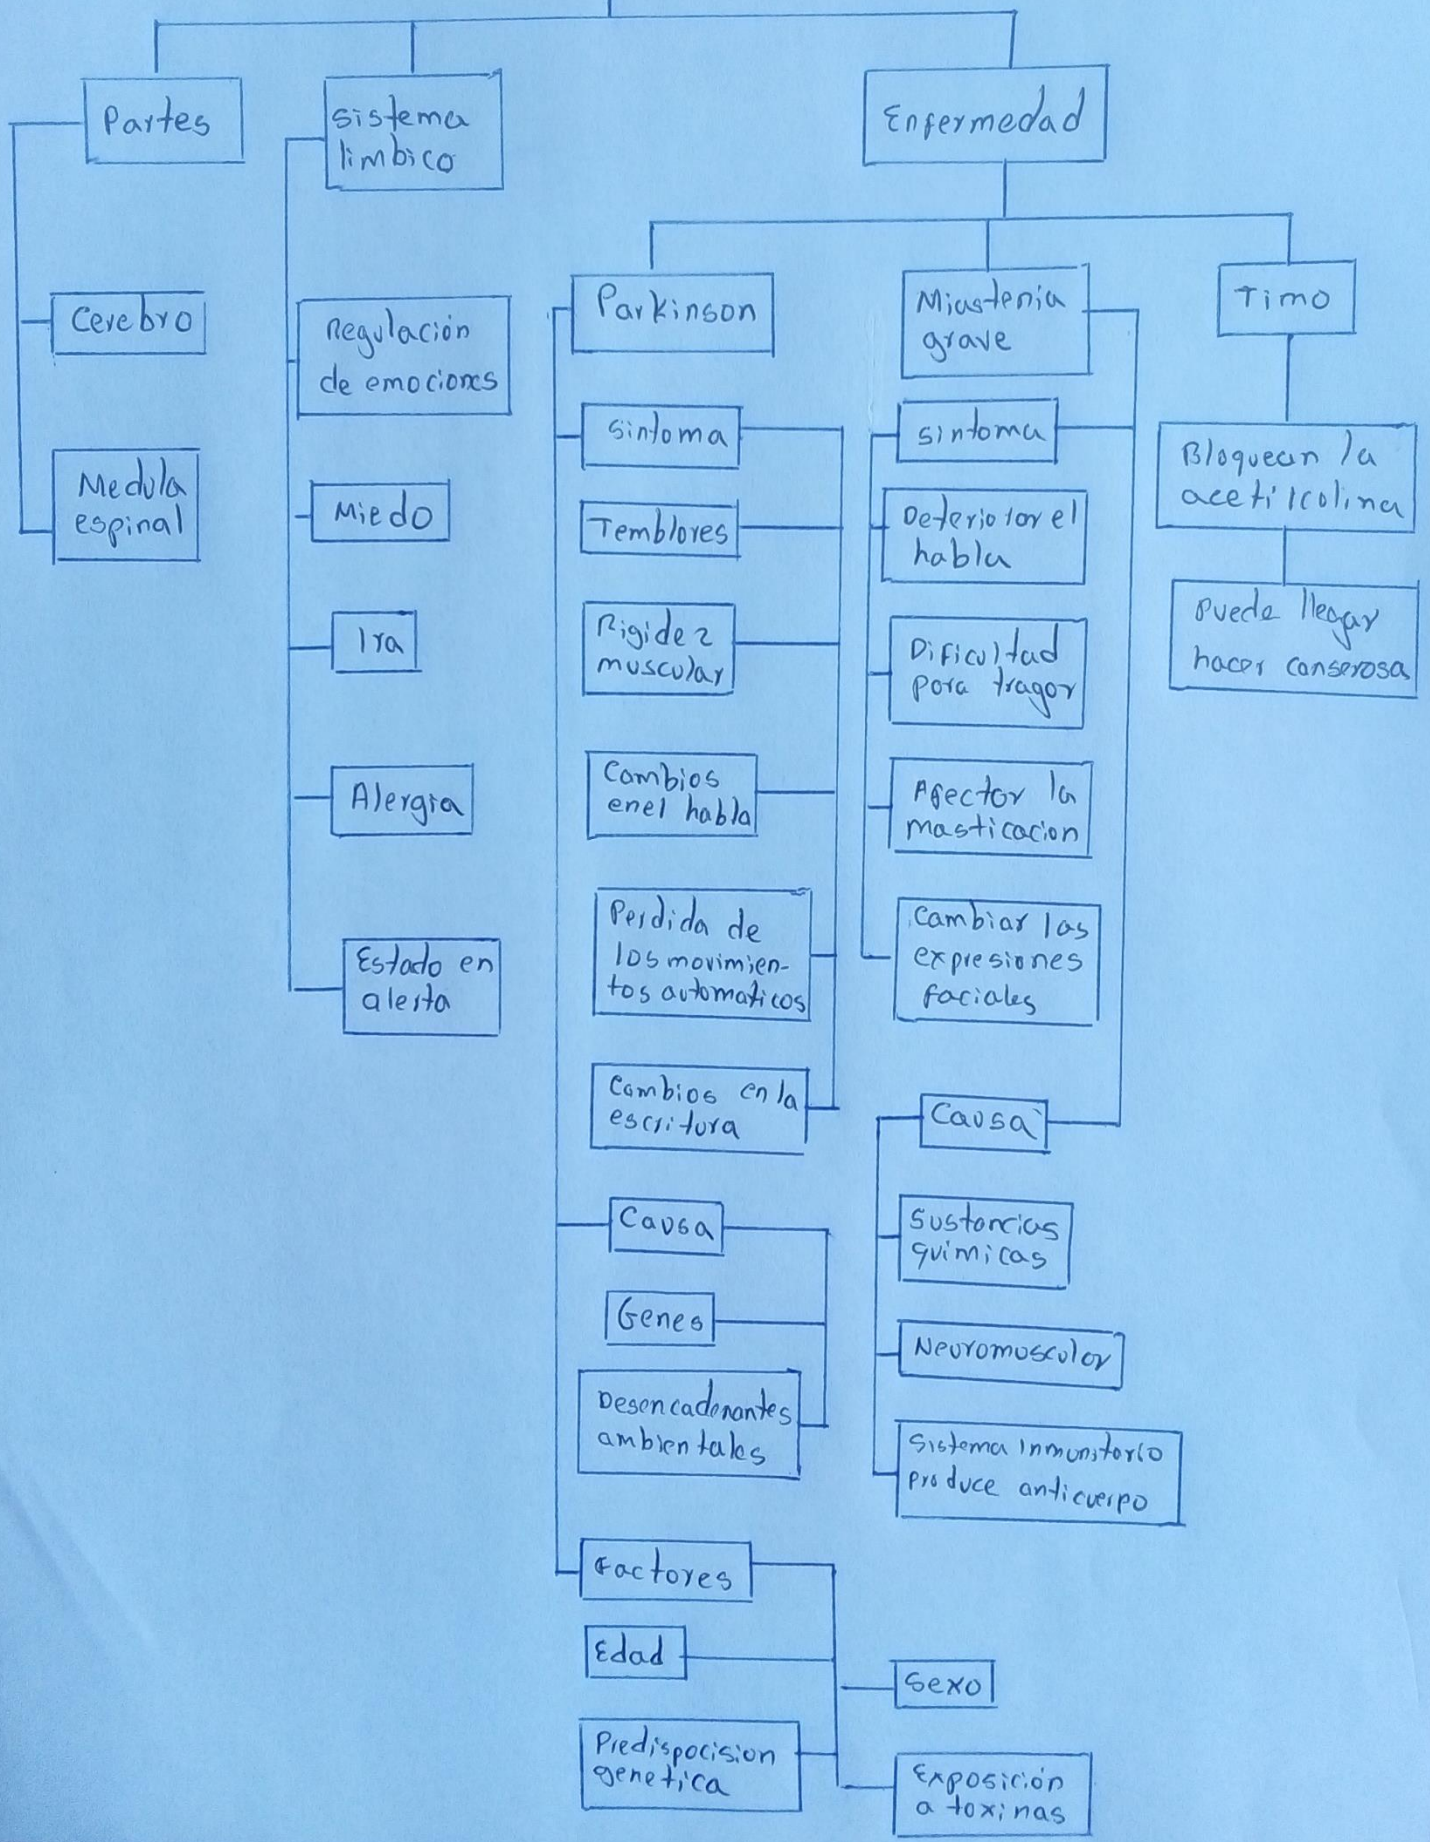 Partes
Sistema
limbico
Enfermedad
Cerebro
Medula
espinal
Regulación
de emociones
Miedo
Ira
Alergia
Estado en
alerta
Parkinson
Sintoma
Temblores
Rigidez
muscular
Cambios
en el habla
Perdida de
los movimien-
tos automaticos
Cambios en la
escritura
Causa
Genes
Desencadenantes
ambientales
Factores
Edad
Predispocision
genetica
Sexo
Exposición
a toxinas
Miastenia
grave
sintoma
Deteriorar el
habla
Dificultad
para tragar
Afectar la
masticacion
Cambiar las
expresiones
faciales
Causa
Sustancias
quimicas
Neuromuscular
Sistema inmunitorio
produce anticuerpo
Timo
Bloquean la
acetilcolina
Puede llegar
hacer canserosa